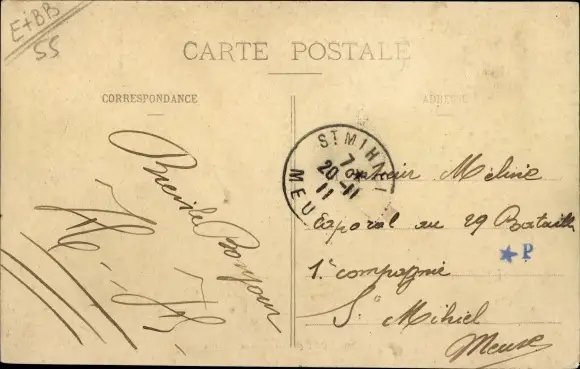 E+BB
55
CARTE POSTALE
CORRESPONDANCE
ADRESSE
ST MIHIEL
7
20-11
11
MEU
Monsieur Méline
Caporal au 29 Bataill
1e compagnie
St Mihiel
Meuse
★P
Bonjour